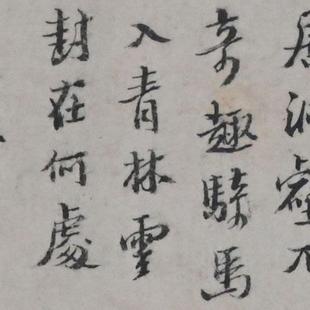 居洞壑不
奇趣騎馬
入青林雲
封在何處